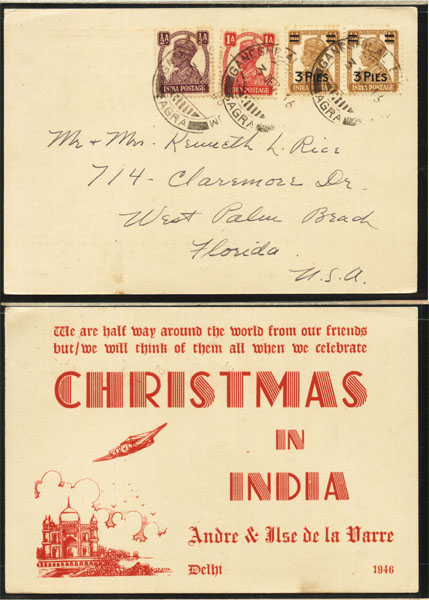 ½A. 1A
INDIA POSTAGE INDIA POSTAGE 3 PIES INDIA POSTAGE 3 PIES INDIA POSTAGE
AGRA GANESHILAL AGRA GANESHILAL AGRA
Mr & Mrs. Kenneth L. Rice
714 - Claremore Dr.
West Palm Beach
Florida.
U.S.A.
We are half way around the world from our friends
but/we will think of them all when we celebrate
CHRISTMAS
IN
INDIA
Andre & Ilse de la Varre
Delhi 1946